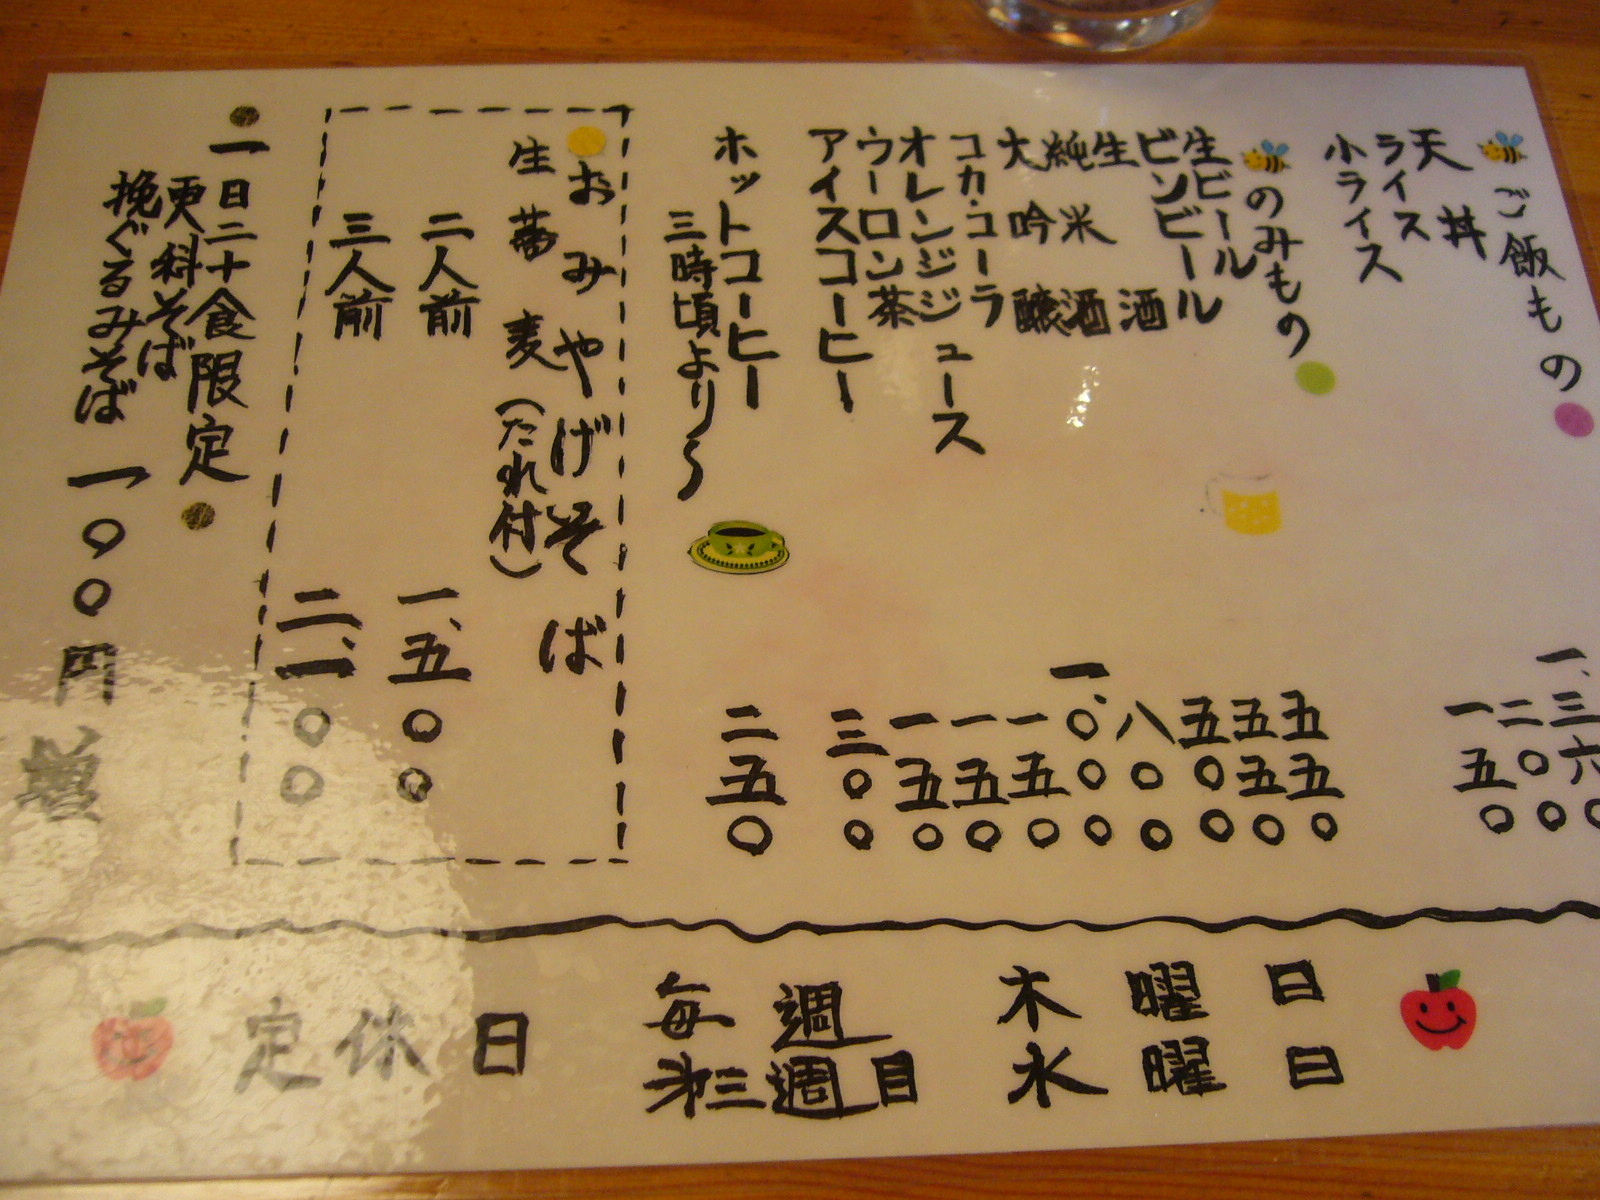 ご飯もの
天丼 一、三六〇
ライス 二〇〇
小ライス 一五〇
のみもの
生ビール 五五〇
ビンビール 五五〇
生酒 五〇〇
純米酒 八〇〇
大吟醸 一、〇〇〇
コカ・コーラ 一五〇
オレンジジュース 一五〇
ウーロン茶 一五〇
アイスコーヒー 三〇〇
ホットコーヒー 二五〇
三時頃より〜
おみやげそば
生蕎麦(たれ付)
二人前 一、五〇〇
三人前 二、一〇〇
一日二十食限定
更科そば
挽ぐるみそば 一〇〇円増
定休日
毎週 木曜日
第三週目 水曜日